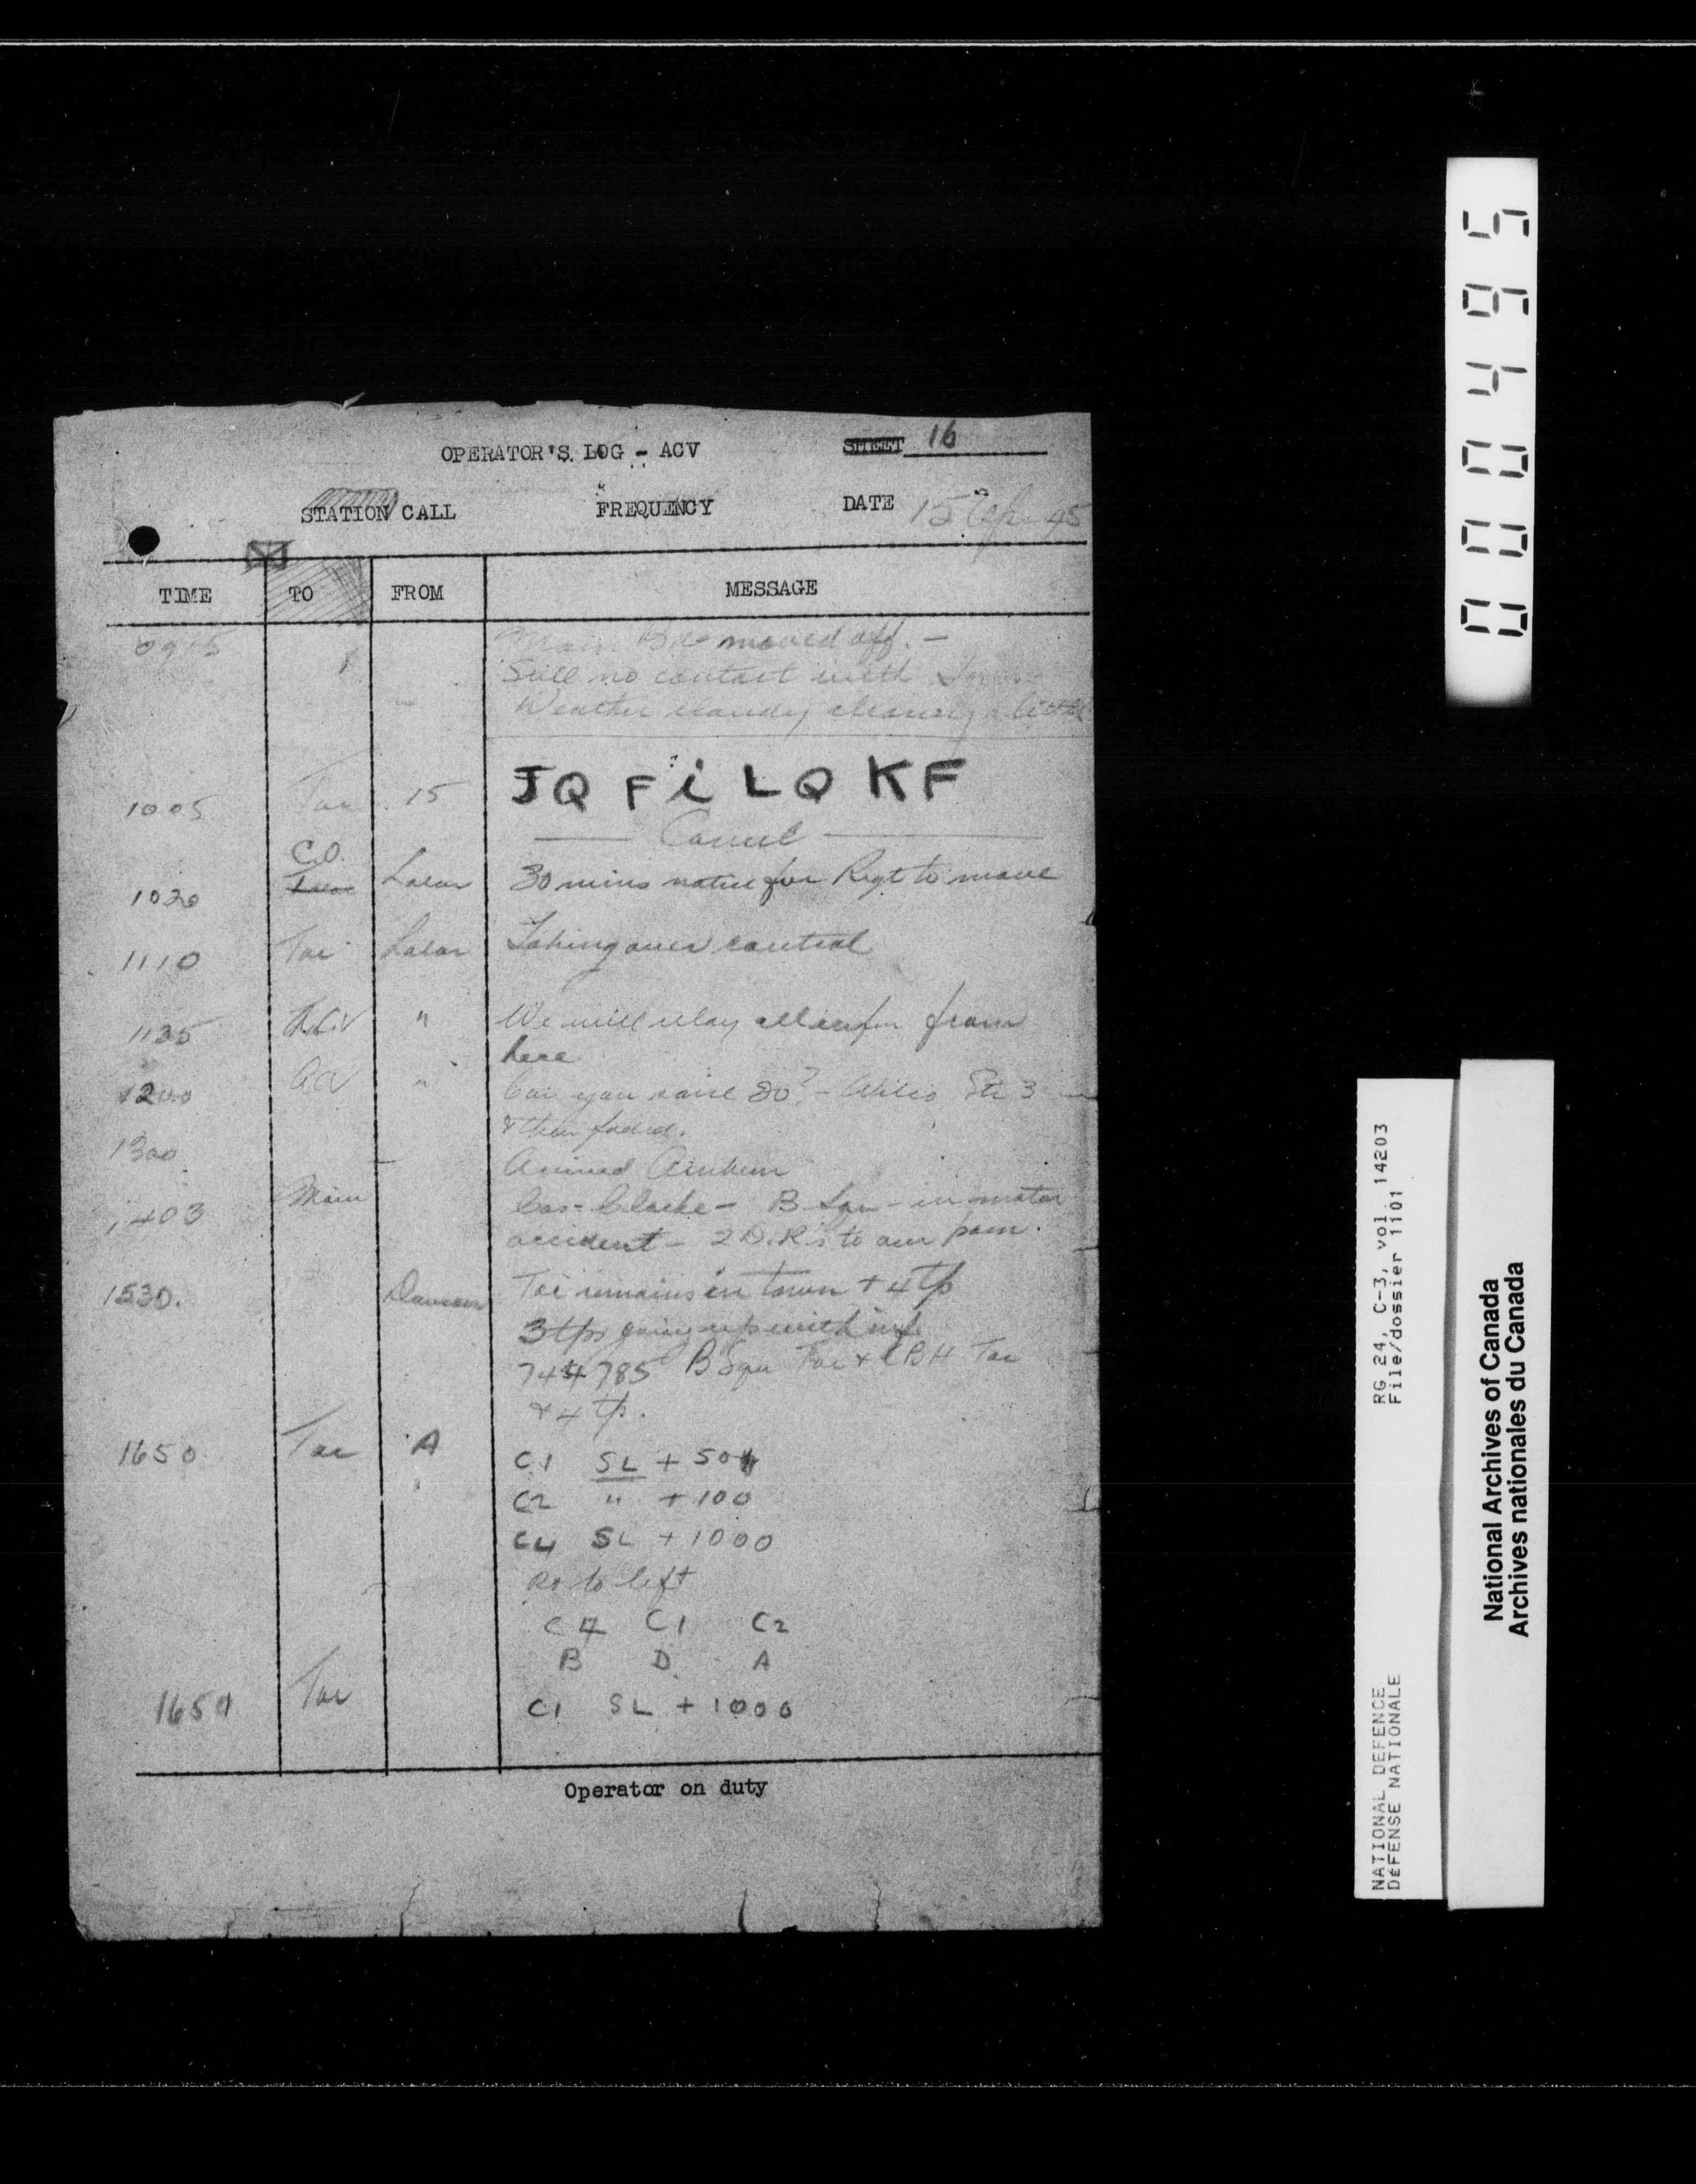 OPERATOR'S LOG - ACV SHEET 16
STATION CALL FREQUENCY DATE 15 Apr 45
TIME TO FROM MESSAGE
0915 Main moved off. -
Still no contact with
Weather cloudy clearing a little
1005 Tac 15 JQ Fi LQ KF
Cancel
C.O.
1020 30 mins notice for Regt to move
1110 Tac Taking over control
1135 " We will relay all infm from
here
1200 " Can you raise 20? - Wilco Str 3
& then faded.
1300 Arrived Arnhem
1403 Main Cas - Clarke - B Sqn - in motor
accident - 2 D.R's to our
1530. Tac remains in town + 4 tp
3 tps going up with inf
744785 B Sqn Tac + CBH Tac
& 4 tp.
1650 Tac A C1 SL + 50
C2 " + 100
C4 SL + 1000
Rt to left
C4 C1 C2
B D A
1651 Tac C1 SL + 1000
Operator on duty
000495
NATIONAL DEFENCE RG 24, C-3, vol. 14203
DÉFENSE NATIONALE File/dossier 1101
National Archives of Canada
Archives nationales du Canada